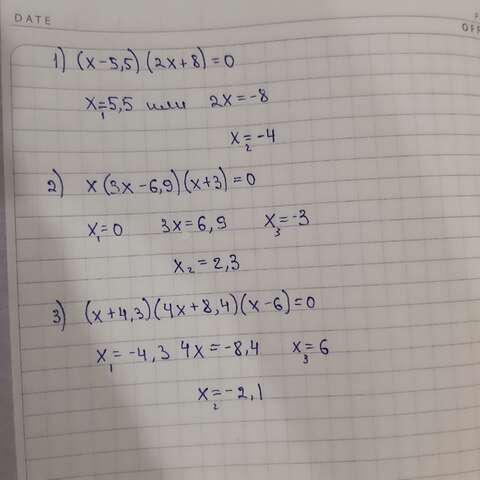 DATE
1) (x-5,5)(2x+8)=0
x₁=5,5 или 2x=-8
x₂=-4
2) x(3x-6,9)(x+3)=0
x₁=0 3x=6,9 x₃=-3
x₂=2,3
3) (x+4,3)(4x+8,4)(x-6)=0
x₁=-4,3 4x=-8,4 x₃=6
x₂=-2,1